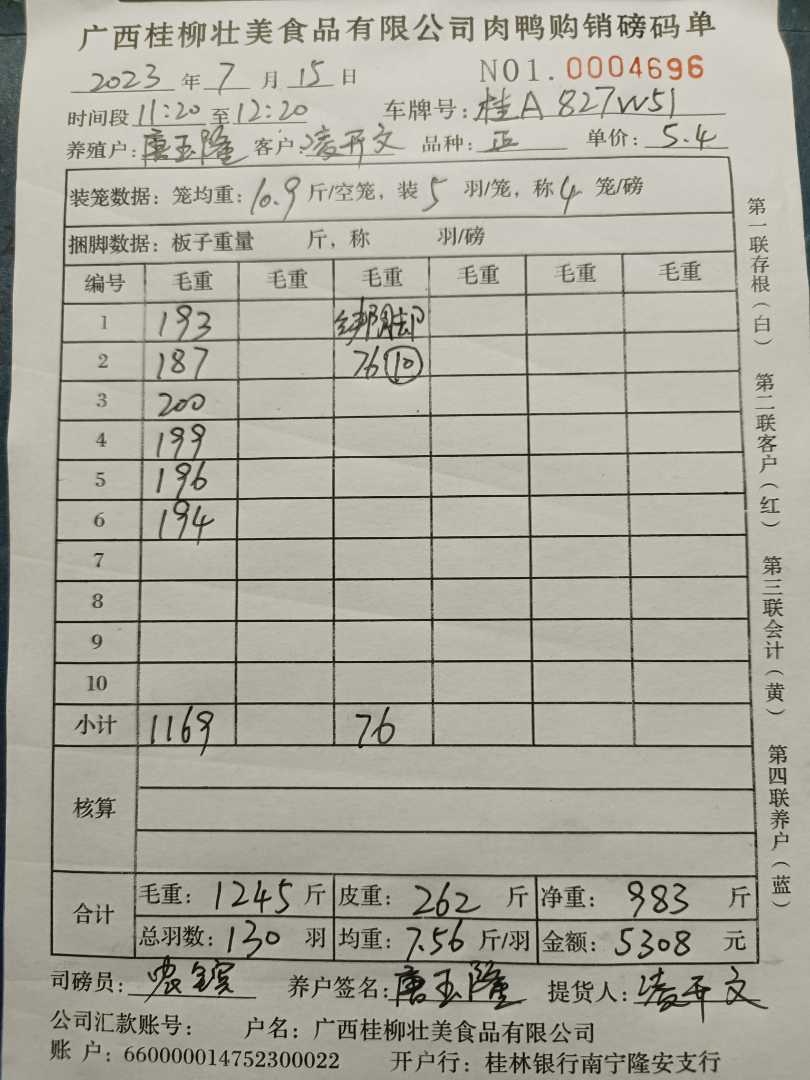 广西桂柳壮美食品有限公司肉鸭购销磅码单
2023年7月15日 NO1.0004696
时间段11:20至12:20 车牌号:桂A827W51
养殖户:唐玉隆 客户:凌开文 品种:正 单价:5.4
装笼数据:笼均重:10.9斤/空笼,装5羽/笼,称4笼/磅
捆脚数据:板子重量 斤,称 羽/磅
编号 毛重 毛重 毛重 毛重 毛重 毛重
1 193 绑脚
2 187 76 10
3 200
4 199
5 196
6 194
7
8
9
10
小计 1169 76
核算
合计 毛重:1245斤 皮重:262斤 净重:983斤
总羽数:130羽 均重:7.56斤/羽 金额:5308元
司磅员: 养户签名:唐玉隆 提货人:凌开文
公司汇款账号: 户名:广西桂柳壮美食品有限公司
账 户:660000014752300022 开户行:桂林银行南宁隆安支行
第一联存根(白) 第二联客户(红) 第三联会计(黄) 第四联养户(蓝)